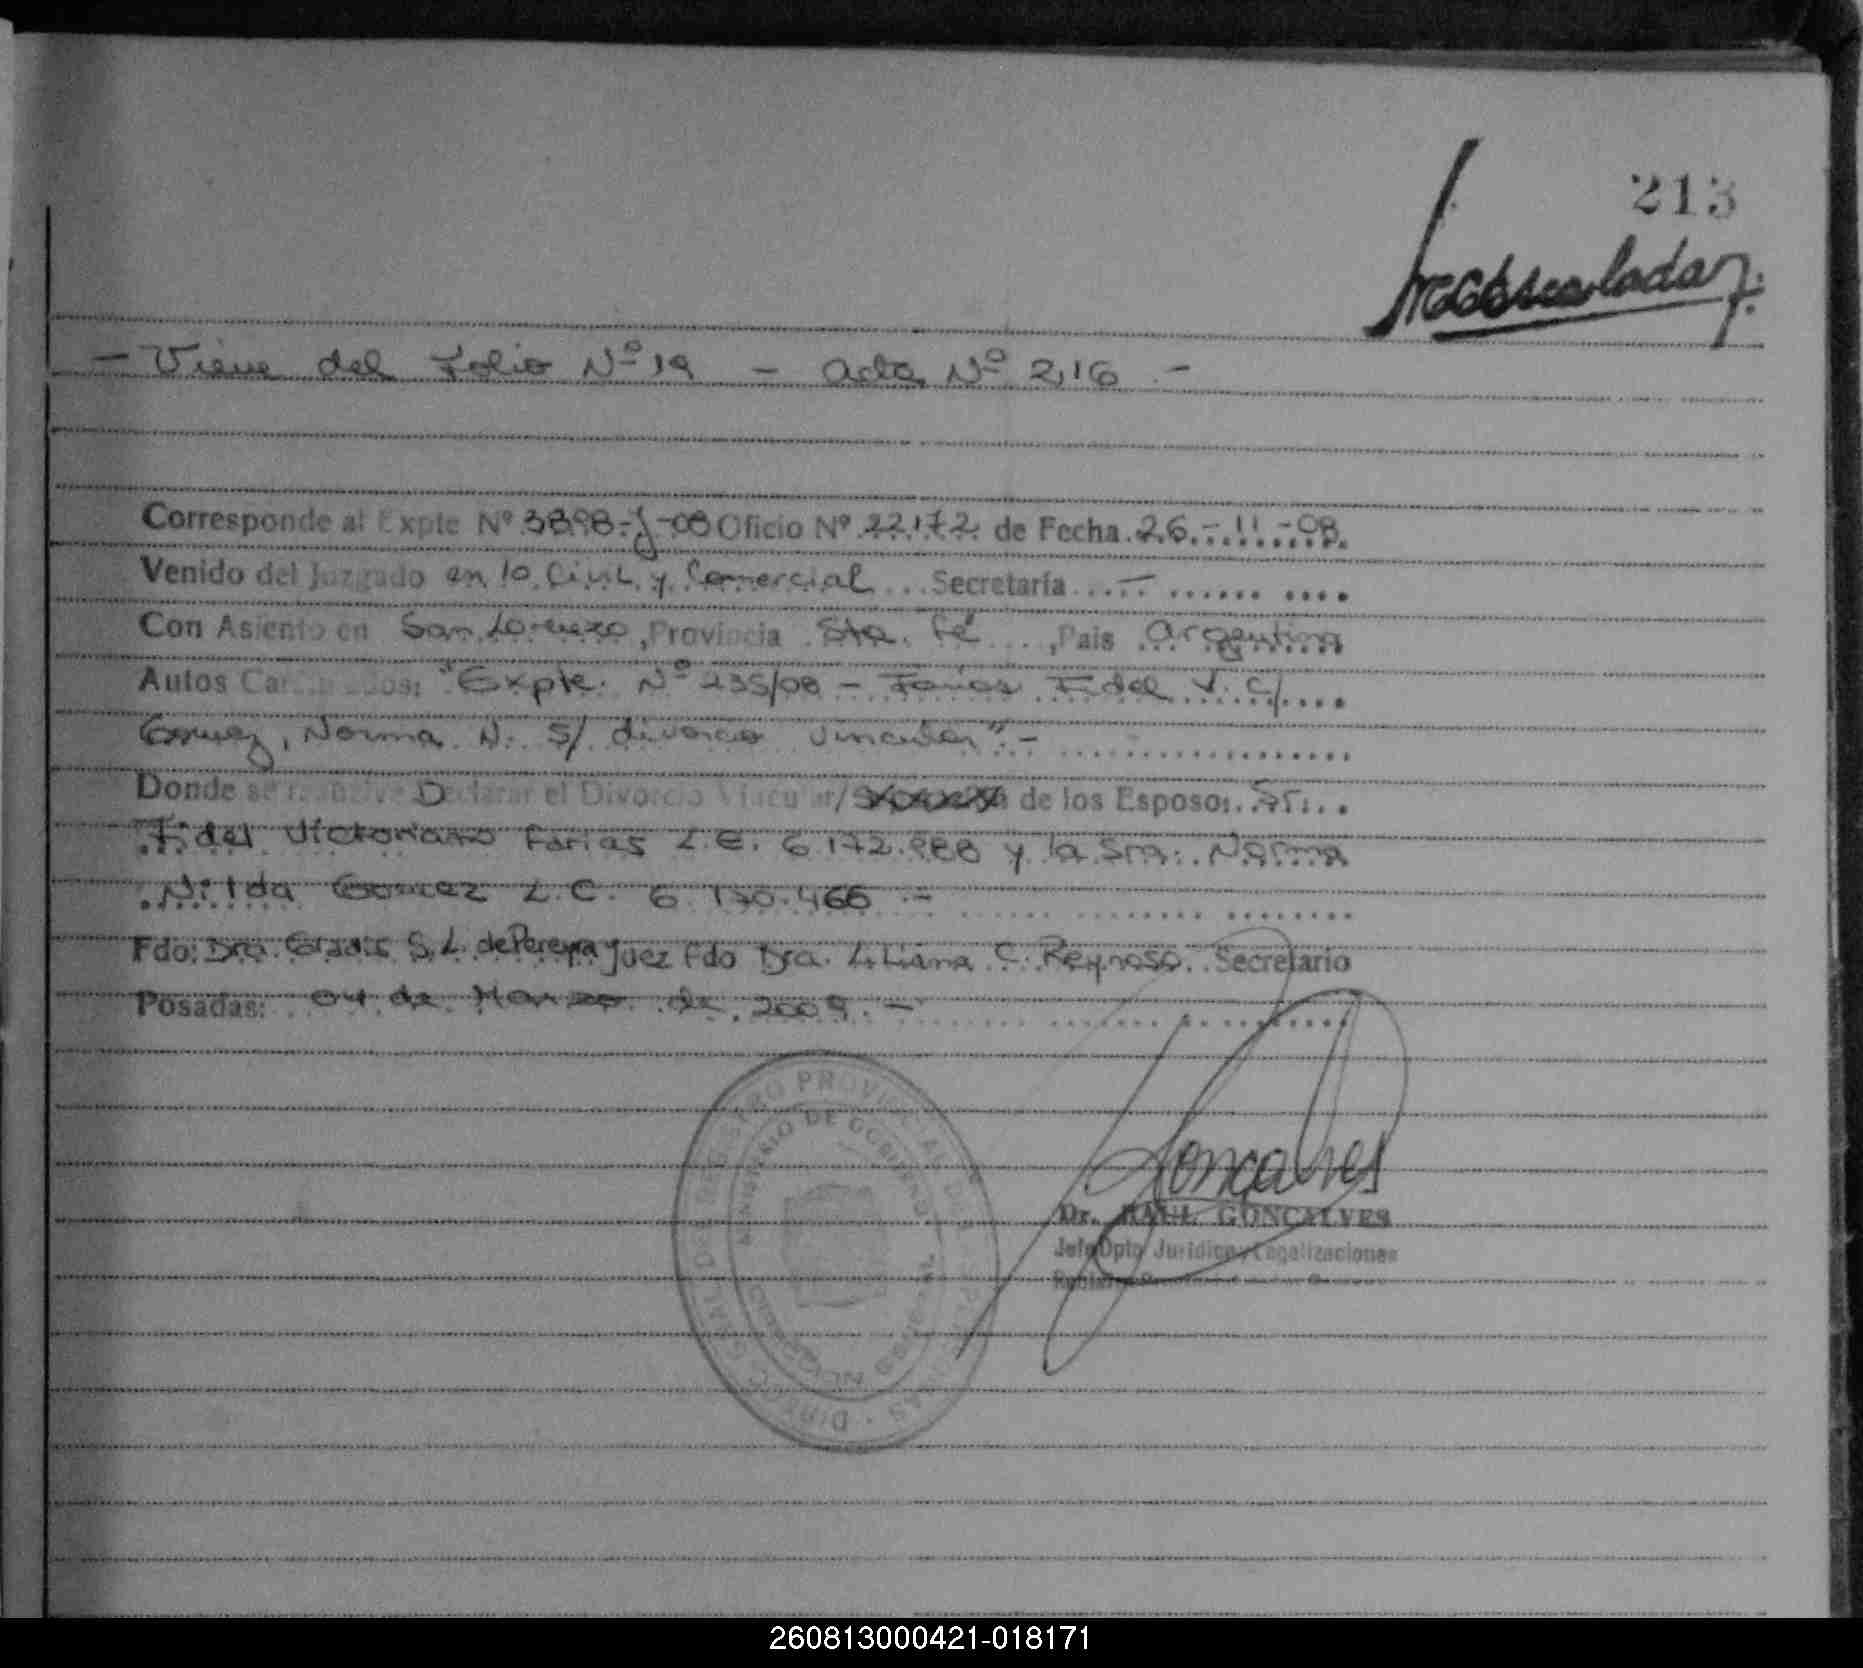 213
- Viene del Folio Nº 19 - Acta Nº 216 -
Corresponde al Expte Nº 3898-J-08 Oficio Nº 22172 de Fecha 26-11-08
Venido del Juzgado en lo Civil y Comercial Secretaría -
Con Asiento en San Lorenzo, Provincia Sta. Fé, Pais Argentina
Autos Caratulados: "Expte. Nº 235/08 - Farias Fidel V. c/
Gomez, Norma N. S/ divorcio vincular".-
Donde se resuelve Declarar el Divorcio Vincular/ de los Esposos: Sr.
Fidel Victoriano Farias L.E. 6.172.988 y la Sra. Norma
Nilda Gomez L.C. 6.170.466.-
Fdo: Dra. Gladis S. L. de Pereyra Juez Fdo Dra. Liliana C. Reynoso Secretario
Posadas: 04 de Marzo de 2009.-
Goncalves
Dr. RAUL GONCALVES
Jefe Dpto Juridico y Legalizaciones
REGISTRO PROVINCIAL DE LAS PERSONAS · DIRECC. GRAL. DEL
MINISTERIO DE GOBIERNO
260813000421-018171